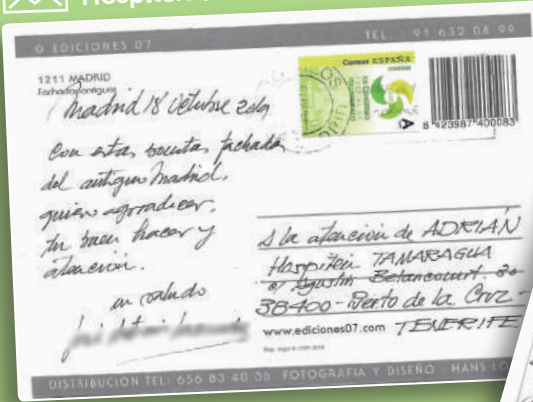 Hospiten
© EDICIONES 07
TEL. 91 632 06 99
1211 MADRID
Fachadas antiguas
Correos ESPAÑA
A
8 423987 400083
Madrid 18 Octubre 2019
Con estas bonitas fachadas
del antiguo Madrid.
quiero agradecer.
tu buen hacer y
atención.
un saludo
A la atención de ADRIÁN
Hospiten TAMARAGUA
c/ Agustín Betancourt. 30
38400 - Puerto de la Cruz -
www.ediciones07.com TENERIFE
DISTRIBUCIÓN TEL: 656 83 40 36 FOTOGRAFÍA Y DISEÑO HANS